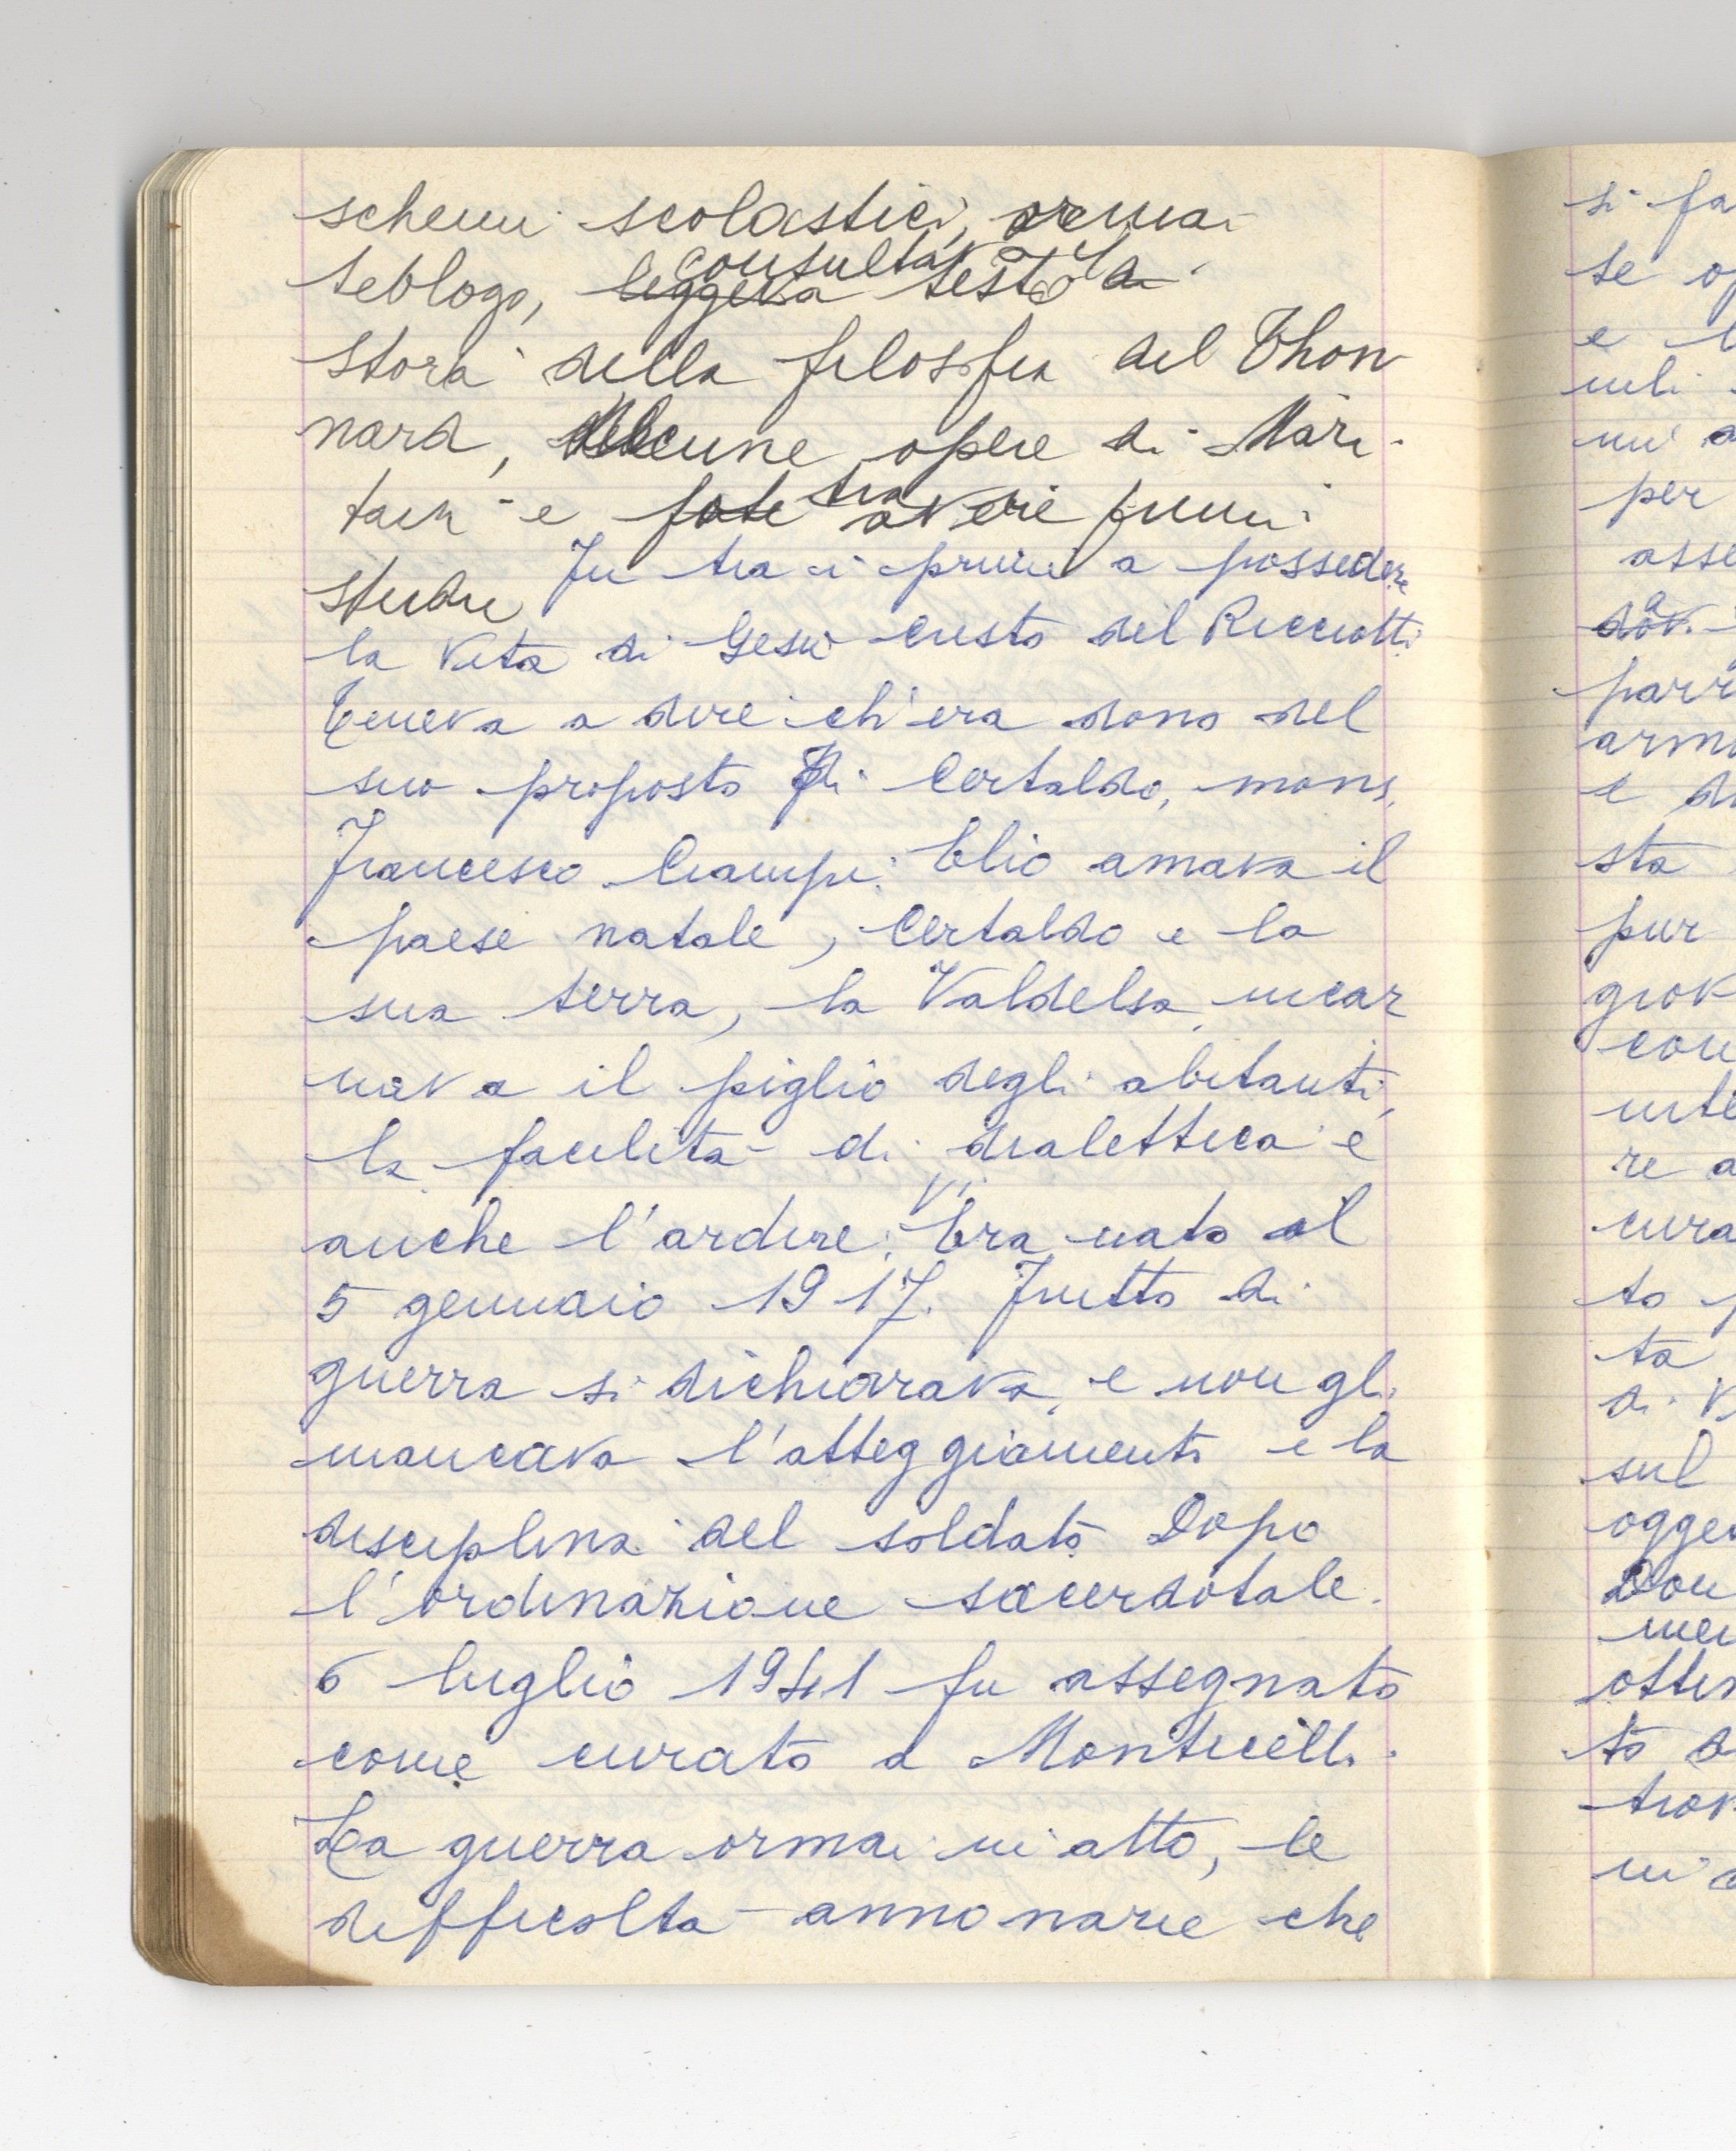 schemi scolastici, ormai
teologo, leggeva consultava testo la
storia della filosofia del Thon
nard, alcune opere di Mari-
tain e fate tra avere primi
studii Fu tra i primi a possedere
la Vita di Gesù Cristo del Ricciotti
Teneva a dire ch'era dono del
suo proposto di Certaldo, mons.
Francesco Ciampi. Elio amava il
paese natale, Certaldo e la
sua terra, la Valdelsa, incar
nava il piglio degli abitanti,
la facilità di dialettica e
anche l'ardire. Era nato il
5 gennaio 1917. Frutto di
guerra si dichiarava, e non gli
mancava l'atteggiamento e la
disciplina del soldato Dopo
l'ordinazione sacerdotale
6 luglio 1941 fu assegnato
come curato a Monticelli.
La guerra ormai in atto, le
difficoltà annonarie che
si fa
se op
e
per
asse
parr
arm
e
sta
pur
giov
con
inte
re a
cura
to
ta
di
sul
ogge
Don
men
otten
to
trov
in